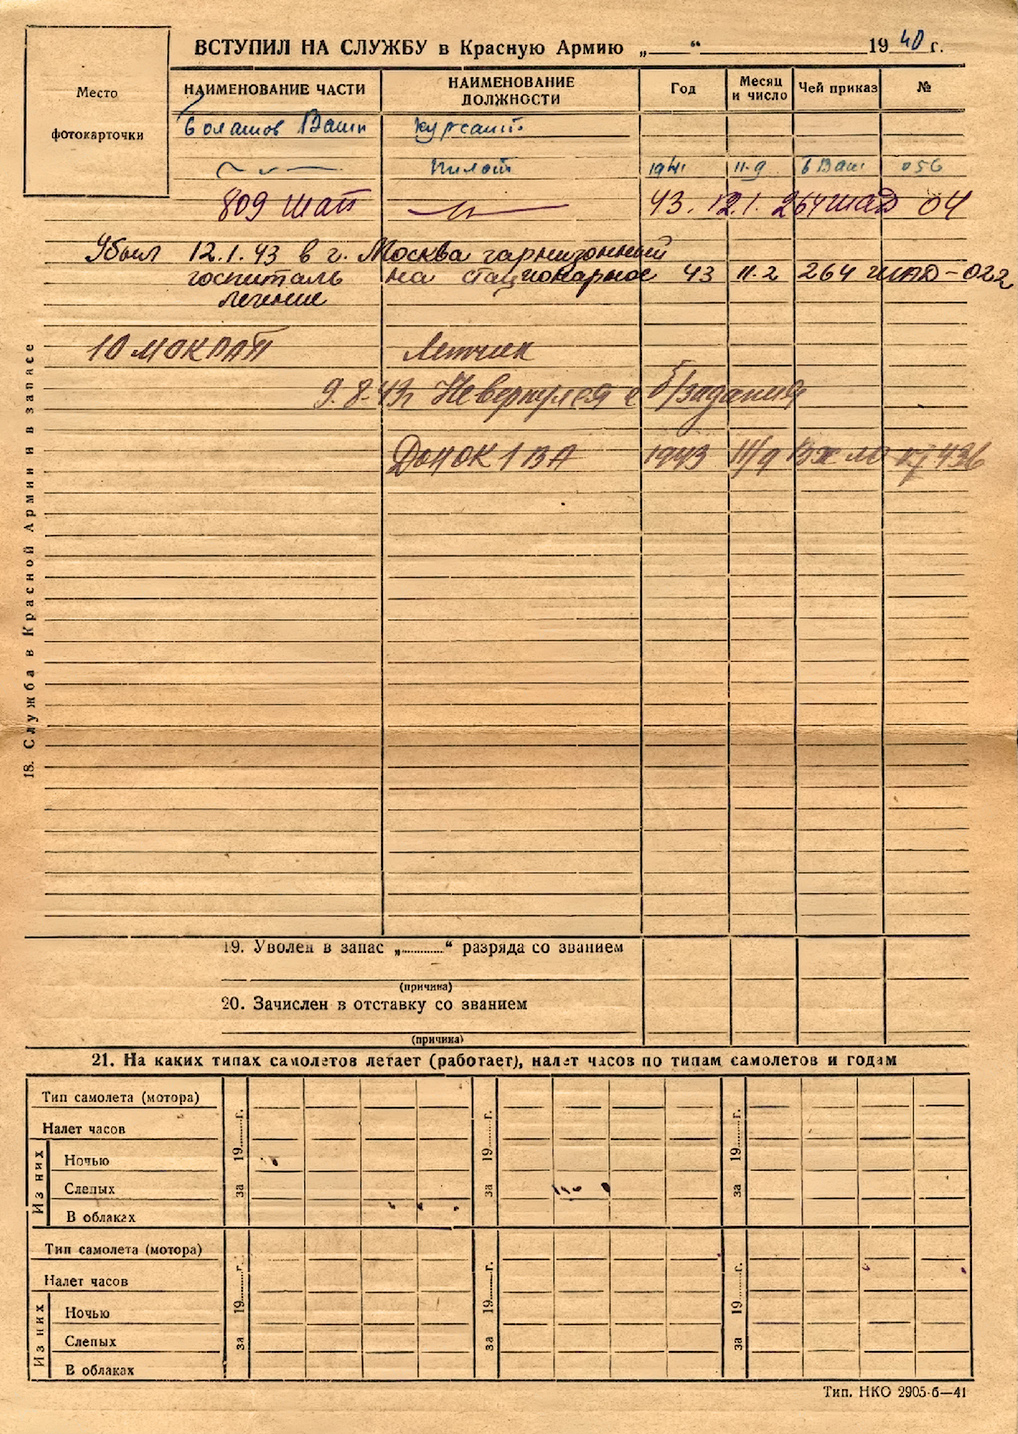 ВСТУПИЛ НА СЛУЖБУ в Красную Армию „ “ 1940 г.
Место фотокарточки
НАИМЕНОВАНИЕ ЧАСТИ НАИМЕНОВАНИЕ ДОЛЖНОСТИ Год Месяц и число Чей приказ №
Балашов Вашп курсант
пилот 1941 11.9 бВаш 056
809 шап 43. 12.1. 264 шад 04
Убыл 12.1.43 в г. Москва гарнизонный
госпиталь на стационарное 43 11.2 264 шад-022
лечение
10 МОКРАП Летчик
9.8.43г Невернулся с б/задания
Донок 1 ВА 1943 11/9 Вх 436
18. Служба в Красной Армии и в запасе
19. Уволен в запас „..........“ разряда со званием
(причина)
20. Зачислен в отставку со званием
(причина)
21. На каких типах самолетов летает (работает), налет часов по типам самолетов и годам
Тип самолета (мотора)
Налет часов
Из них
Ночью
Слепых
В облаках
за 19......г.
за 19......г.
за 19......г.
Тип самолета (мотора)
Налет часов
Из них
Ночью
Слепых
В облаках
за 19......г.
за 19......г.
за 19......г.
Тип. НКО 2905-б—41